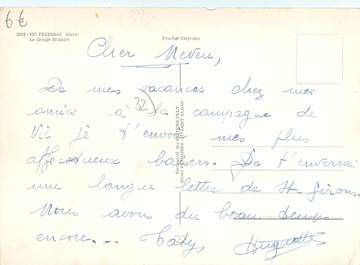 6€
VIC-FEZENSAC (Gers)
Le Groupe Scolaire
Cher Neveu,
De mes vacances chez mes
amies à la campagne de
32
Vic je t'envoie mes plus
affectueux baisers. Je t'enverrai
une longue lettre de St Girons.
Nous avons du beau temps
encore... Taty Huguette